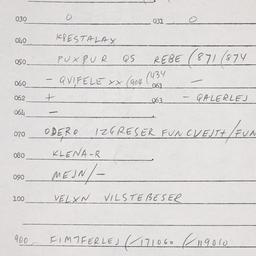 030 0 031 0
040 KRESTALAX
050 PUXPUR QS REBE (871 (874
060 - QVIFELE xx (904 (934 061 -
062 + 063 - GALERLEJ
064 -
070 ODERO IZGRESER FUNCVEJT+/FUN
080 KLENA-R
090 MEJN/-
100 VELXN VILSTEBESER
900 FIMTFERLEJ (/171060 (/119010